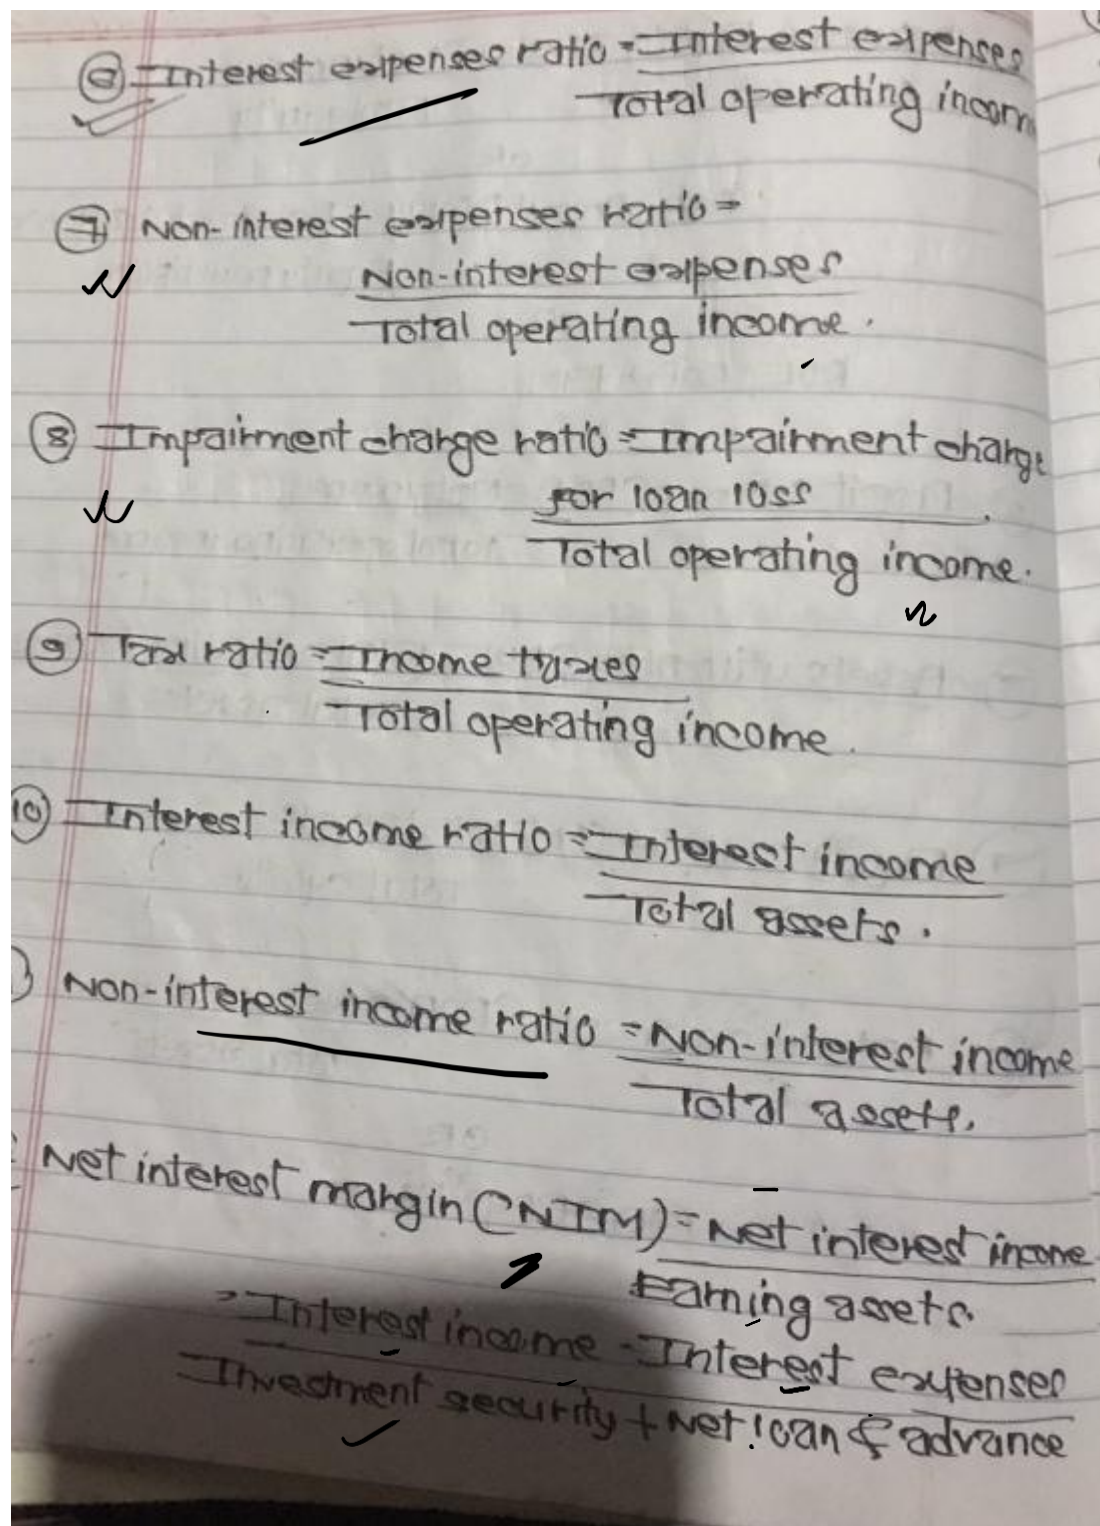 ⑥ Interest expenses ratio = Interest expenses
Total operating incom
⑦ Non-interest expenses ratio =
Non-interest expenses
Total operating income.
⑧ Impairment charge ratio = Impairment charge
for loan loss
Total operating income.
⑨ Tax ratio = Income taxes
Total operating income.
⑩ Interest income ratio = Interest income
Total assets.
) Non-interest income ratio = Non-interest income
Total assets.
Net interest margin (NIM) = Net interest income
Earning assets.
= Interest income - Interest expenses
Investment security + Net loan & advance